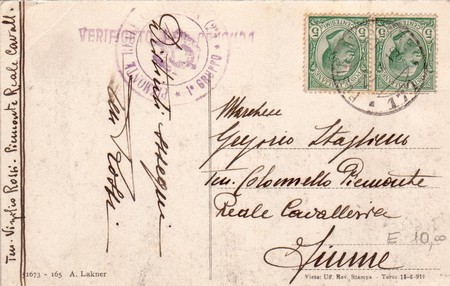 Ten. Virgilio Rossi - Piemonte Reale Cavall.
VERIFICATO PER CENSURA
PIEMONTE REALE
1° GRUPPO
Distinti ossequi
Rossi
Marchese
Gregorio Stagliano
Ten. Colonnello Piemonte
Reale Cavalleria
Fiume
E 10,00
51673 - 165 A. Lakner
Vista: Uff. Rev. Stampa - Torino 18-6-919